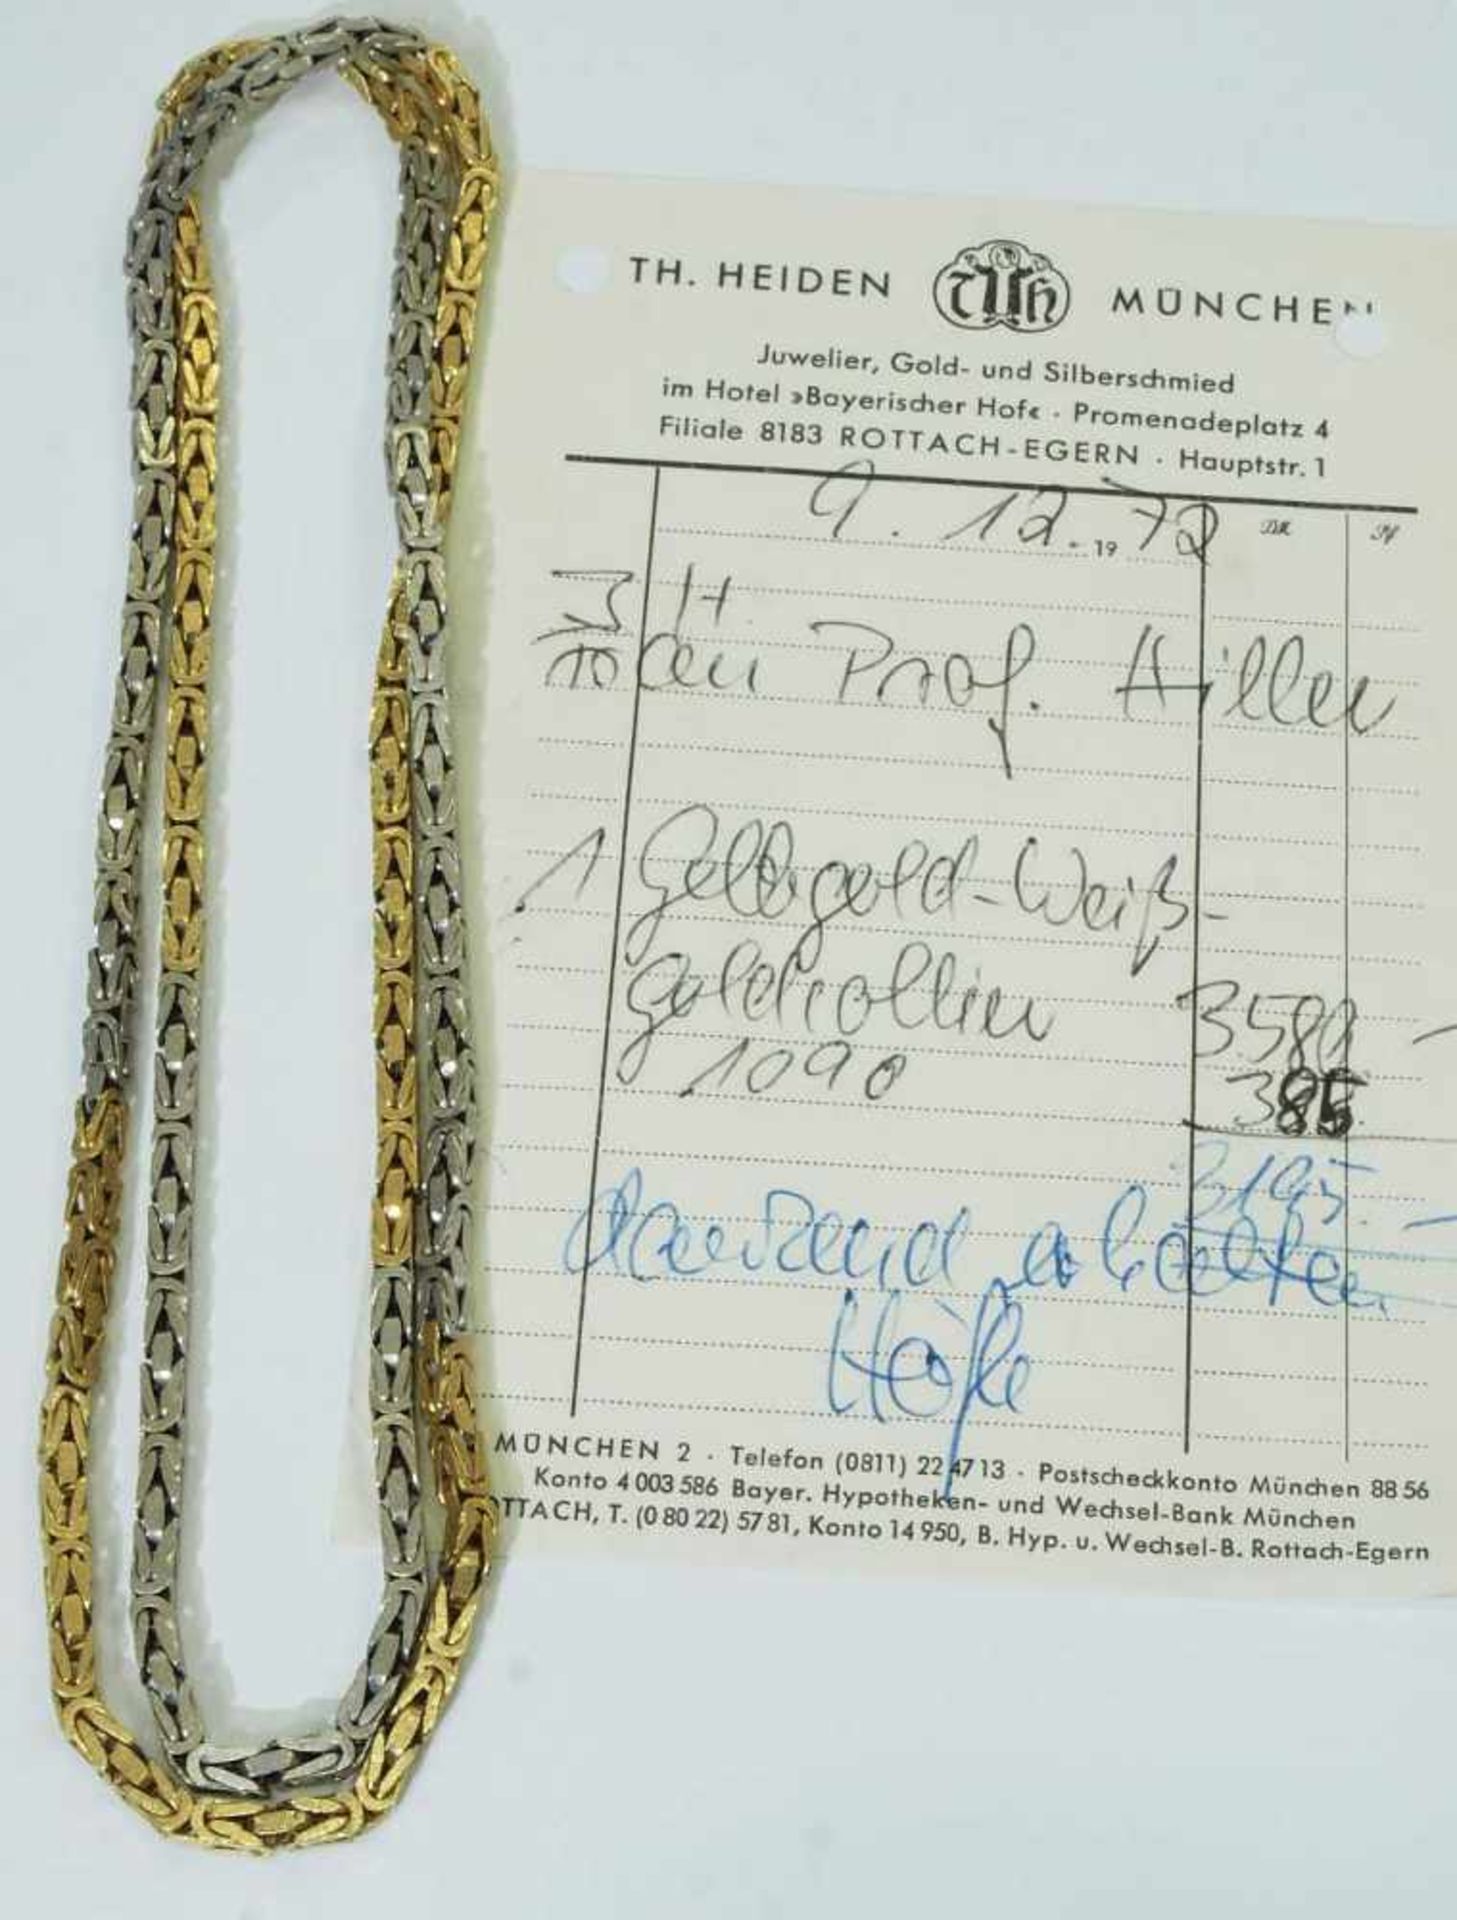 TH. HEIDEN TH MÜNCHEN
Juwelier, Gold- und Silberschmied
im Hotel »Bayerischer Hof« · Promenadeplatz 4
Filiale 8183 ROTTACH-EGERN · Hauptstr. 1
9. 12. 1972 DM Pf
H.
Prof. Hiller
1 Gelbgold-Weiß-
goldcollier 3.580.-
1090 385.
3195.-
dankend erhalten
MÜNCHEN 2 · Telefon (0811) 22 47 13 · Postscheckkonto München 88 56
Konto 4 003 586 Bayer. Hypotheken- und Wechsel-Bank München
OTTACH, T. (0 80 22) 57 81, Konto 14 950, B. Hyp. u. Wechsel-B. Rottach-Egern